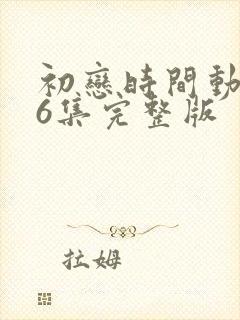 初戀時間動
6集完整版
拉姆